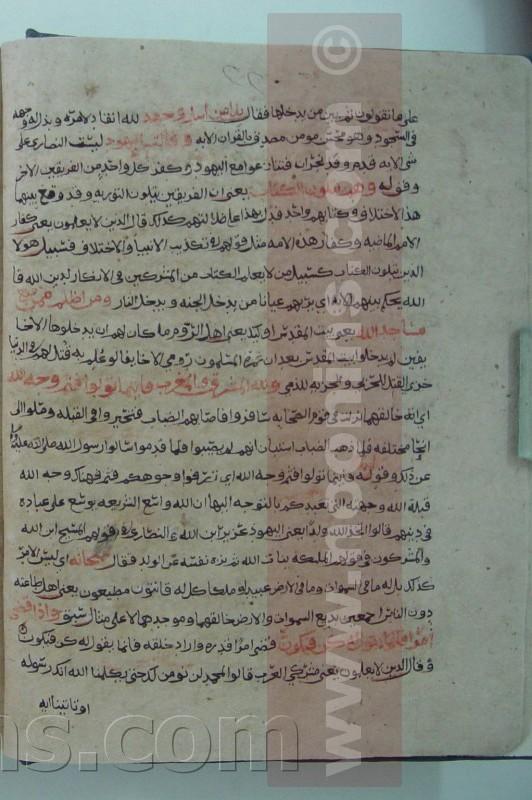 على ما تقولون ثم بين من يدخلها فقال بلى من اسلم وجهه لله انقاد لامره وبذل له وجهه
في السجود وهو محسن مومن مصدق بالقران الايه وقالت اليهود ليست النصارى على
شي الايه قدم وفد نجران فتنازعوا مع اليهود وكفر كل واحد من الفريقين الاخر
وقوله وهم يتلون الكتاب يعني ان الفريقين يتلون التوريه وقد وقع بينهم
هذا الاختلاف وكتابهم واحد فدل بهذا على ضلالتهم كذلك قال الذين لا يعلمون يعني كفار
الامم الماضيه وكفار هذه الامه مثل قولهم في تكذيب الانبيا والاختلاف فسبيل هولا
الذين يتلون الكتاب كسبيل من لا يعلم الكتاب من المشركين في الانكار لدين الله فا
الله يحكم بينهم الايه اي يريهم عيانا من يدخل الجنه و يدخل النار ومن اظلم ممن منع
مساجد الله يعني بيت المقدس اوليك يعني اهل الروم ما كان لهم ان يدخلوها الا خا
يفين لم يدخل بيت المقدس بعد ان عمره المسلمون رومي الا خايفا لو علم به قتل لهم في الدنيا
خزي القتل للحربي والجزيه للذمي ولله المشرق والمغرب فاينما تولوا فثم وجه الله
اي انه خالقهما نزلت في قوم من الصحابه سافروا فاصابهم الضباب فتحيروا في القبله وصلوا الى
انحا مختلفه فلما ذهب الضباب استبان انهم لم يصيبوا فلما قدموا سالوا رسول الله صلى الله عليه
عن ذلك وقوله فاينما تولوا فثم وجه الله اي تصرفوا وجوهكم فثم فهناك وجه الله
قبلة الله وجهته التي تعبدكم بالتوجه اليها ان الله واسع الشريعه يوسع على عباده
في دينهم قالوا اتخذ الله ولدا يعني اليهود عزير ابن الله والنصارى في قولهم المسيح ابن الله
والمشركون في قولهم الملايكه بنات الله ثم نزه نفسه عن الولد فقال سبحانه اي ليس الامر
كذلك بل له ما في السموات وما في الارض عبيدا وملكا كل له قانتون مطيعون يعني اهل طاعته
دون الناس اجمعين بديع السموات والارض خالقهما وموجدهما لا على مثال سبق واذا قضى
امرا فانما يقول له كن فيكون قضى امرا قدره واراد خلقه فانما يقول له كن فيكون
وقال الذين لا يعلمون يعني مشركي العرب قالوا لمحمد لن نومن لك حتى يكلمنا الله انك رسوله
او تاتينا ايه